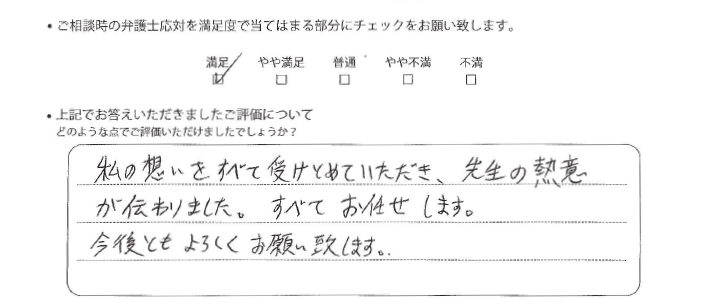 • ご相談時の弁護士応対を満足度で当てはまる部分にチェックをお願い致します。
満足 やや満足 普通 やや不満 不満
☑ □ □ □ □
• 上記でお答えいただきましたご評価について
どのような点でご評価いただけましたでしょうか？
私の想いをすべて受けとめていただき、先生の熱意
が伝わりました。すべてお任せします。
今後ともよろしくお願い致します。